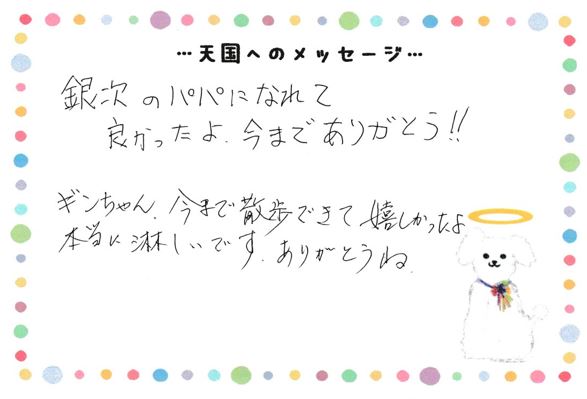 …天国へのメッセージ…
銀次のパパになれて
良かったよ.今までありがとう!!
ギンちゃん.今まで散歩できて嬉しかったよ
本当に淋しいです.ありがとうね.